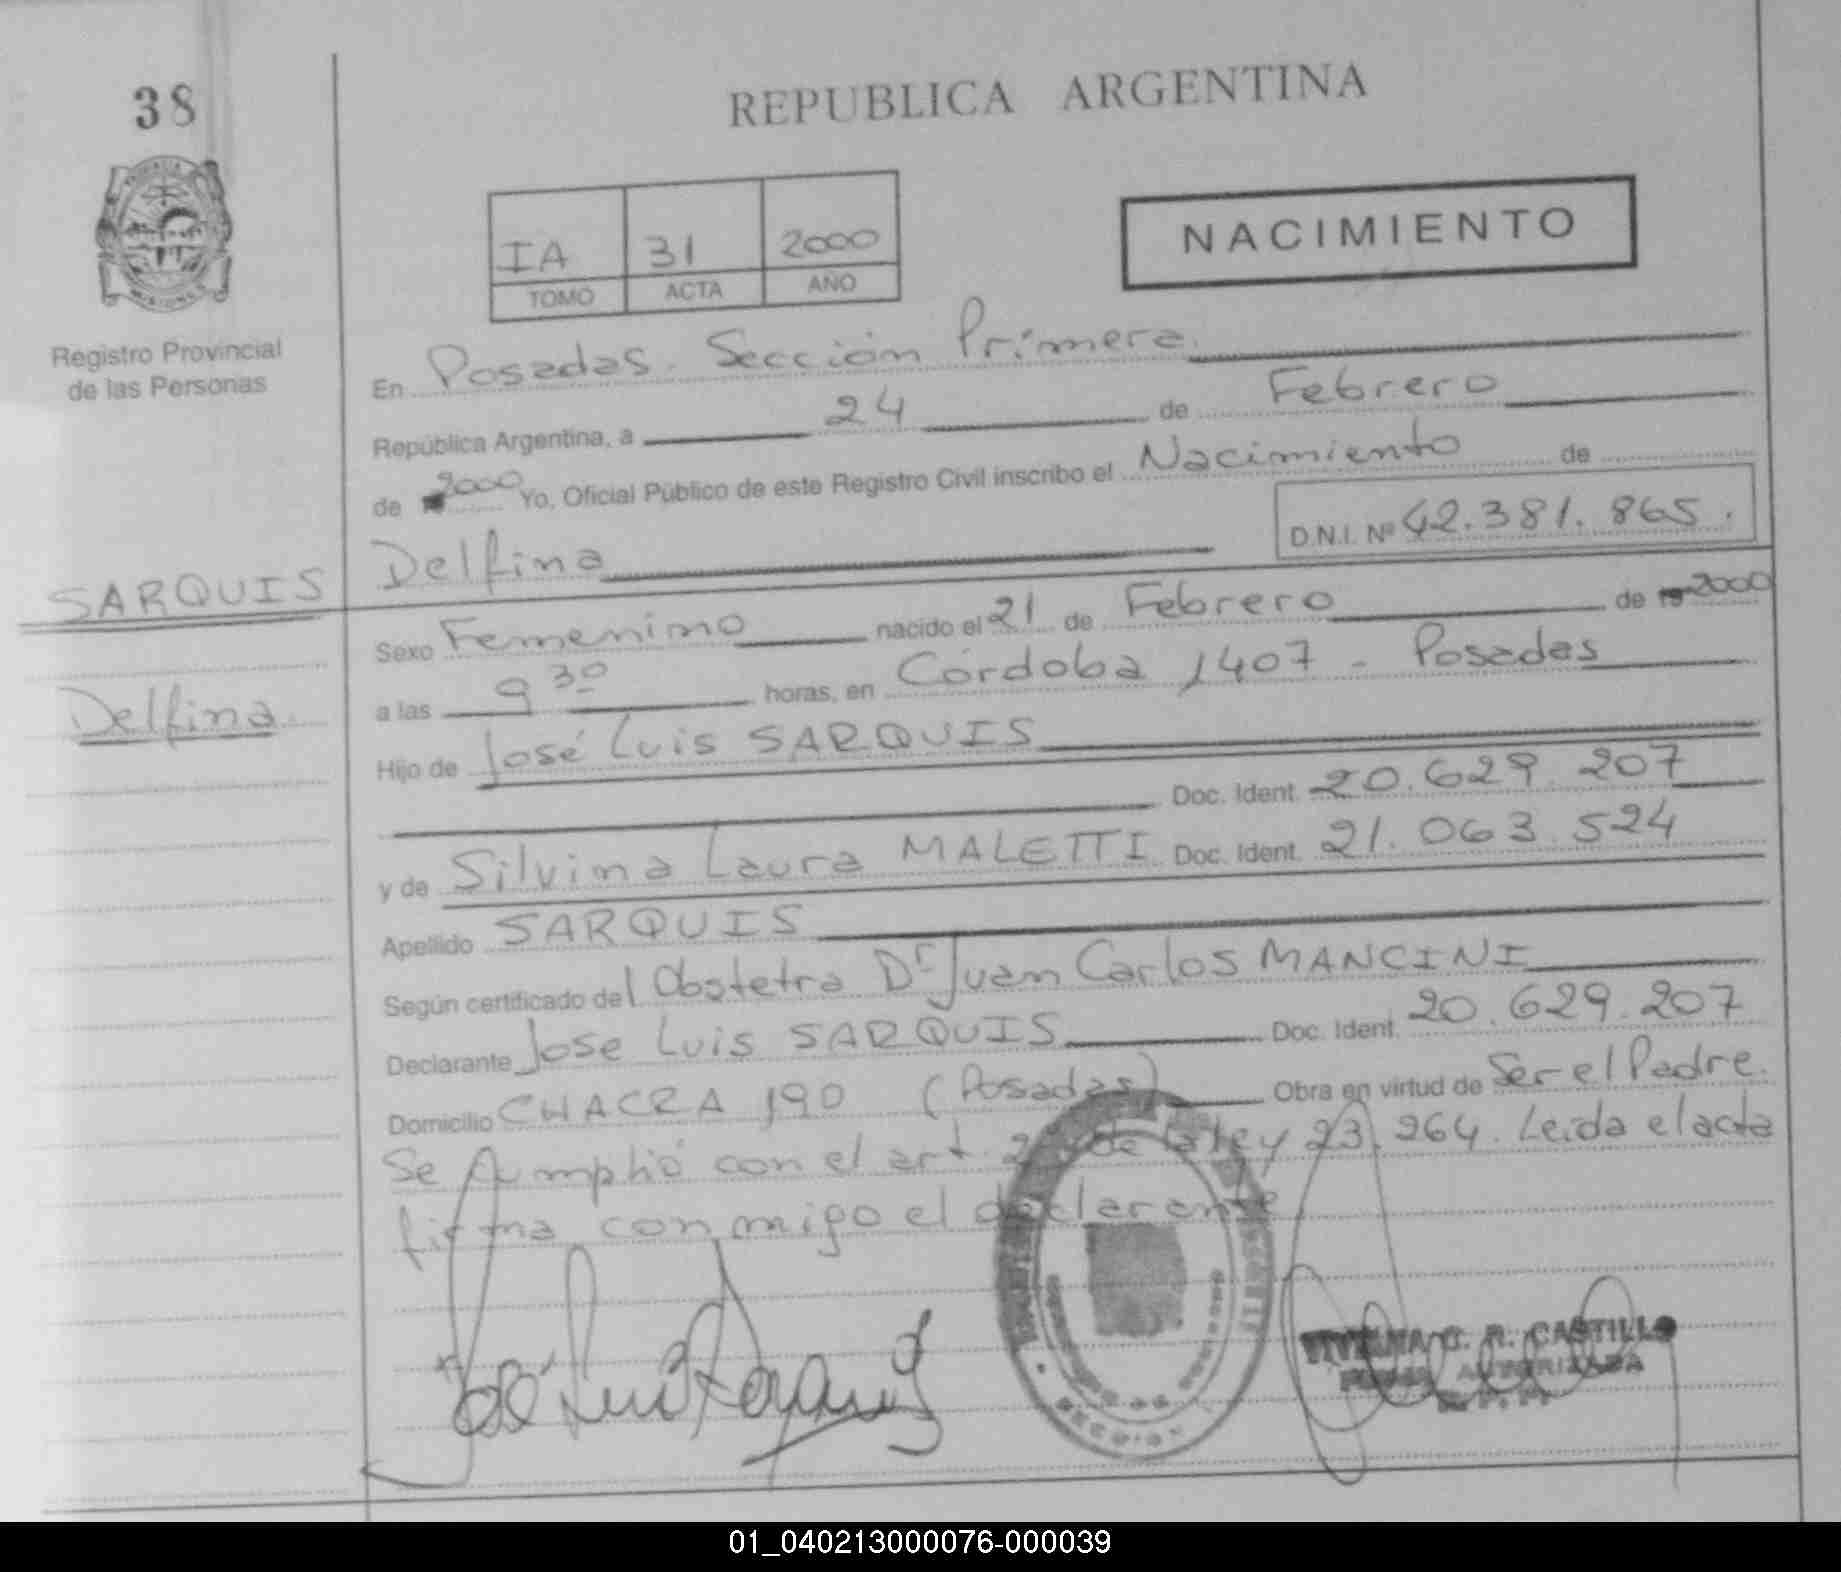 38
REPUBLICA ARGENTINA
IA 31 2000
TOMO ACTA AÑO
NACIMIENTO
Registro Provincial
de las Personas
En Posadas. Sección Primera.
República Argentina, a 24 de Febrero
de 2000 Yo, Oficial Público de este Registro Civil inscribo el Nacimiento de
Delfina D.N.I. Nº 42.381.865.
SARQUIS
Delfina
Sexo Femenino nacido el 21 de Febrero de 19 2000
a las 9 30 horas, en Córdoba 1407 - Posadas
Hijo de José Luis SARQUIS
Doc. Ident. 20.629.207
y de Silvina Laura MALETTI Doc. Ident. 21.063.524
Apellido SARQUIS
Según certificado del Obstetra Dr Juan Carlos MANCINI
Declarante Jose Luis SARQUIS Doc. Ident. 20.629.207
Domicilio CHACRA 190 (Posadas) Obra en virtud de Ser el Padre.
Se cumplió con el art. de la ley 23.264. Leida el acta
firma conmigo el declarante
José Luis Sarquis
G. R. CASTILLO
AUTORIZADA
01_040213000076-000039